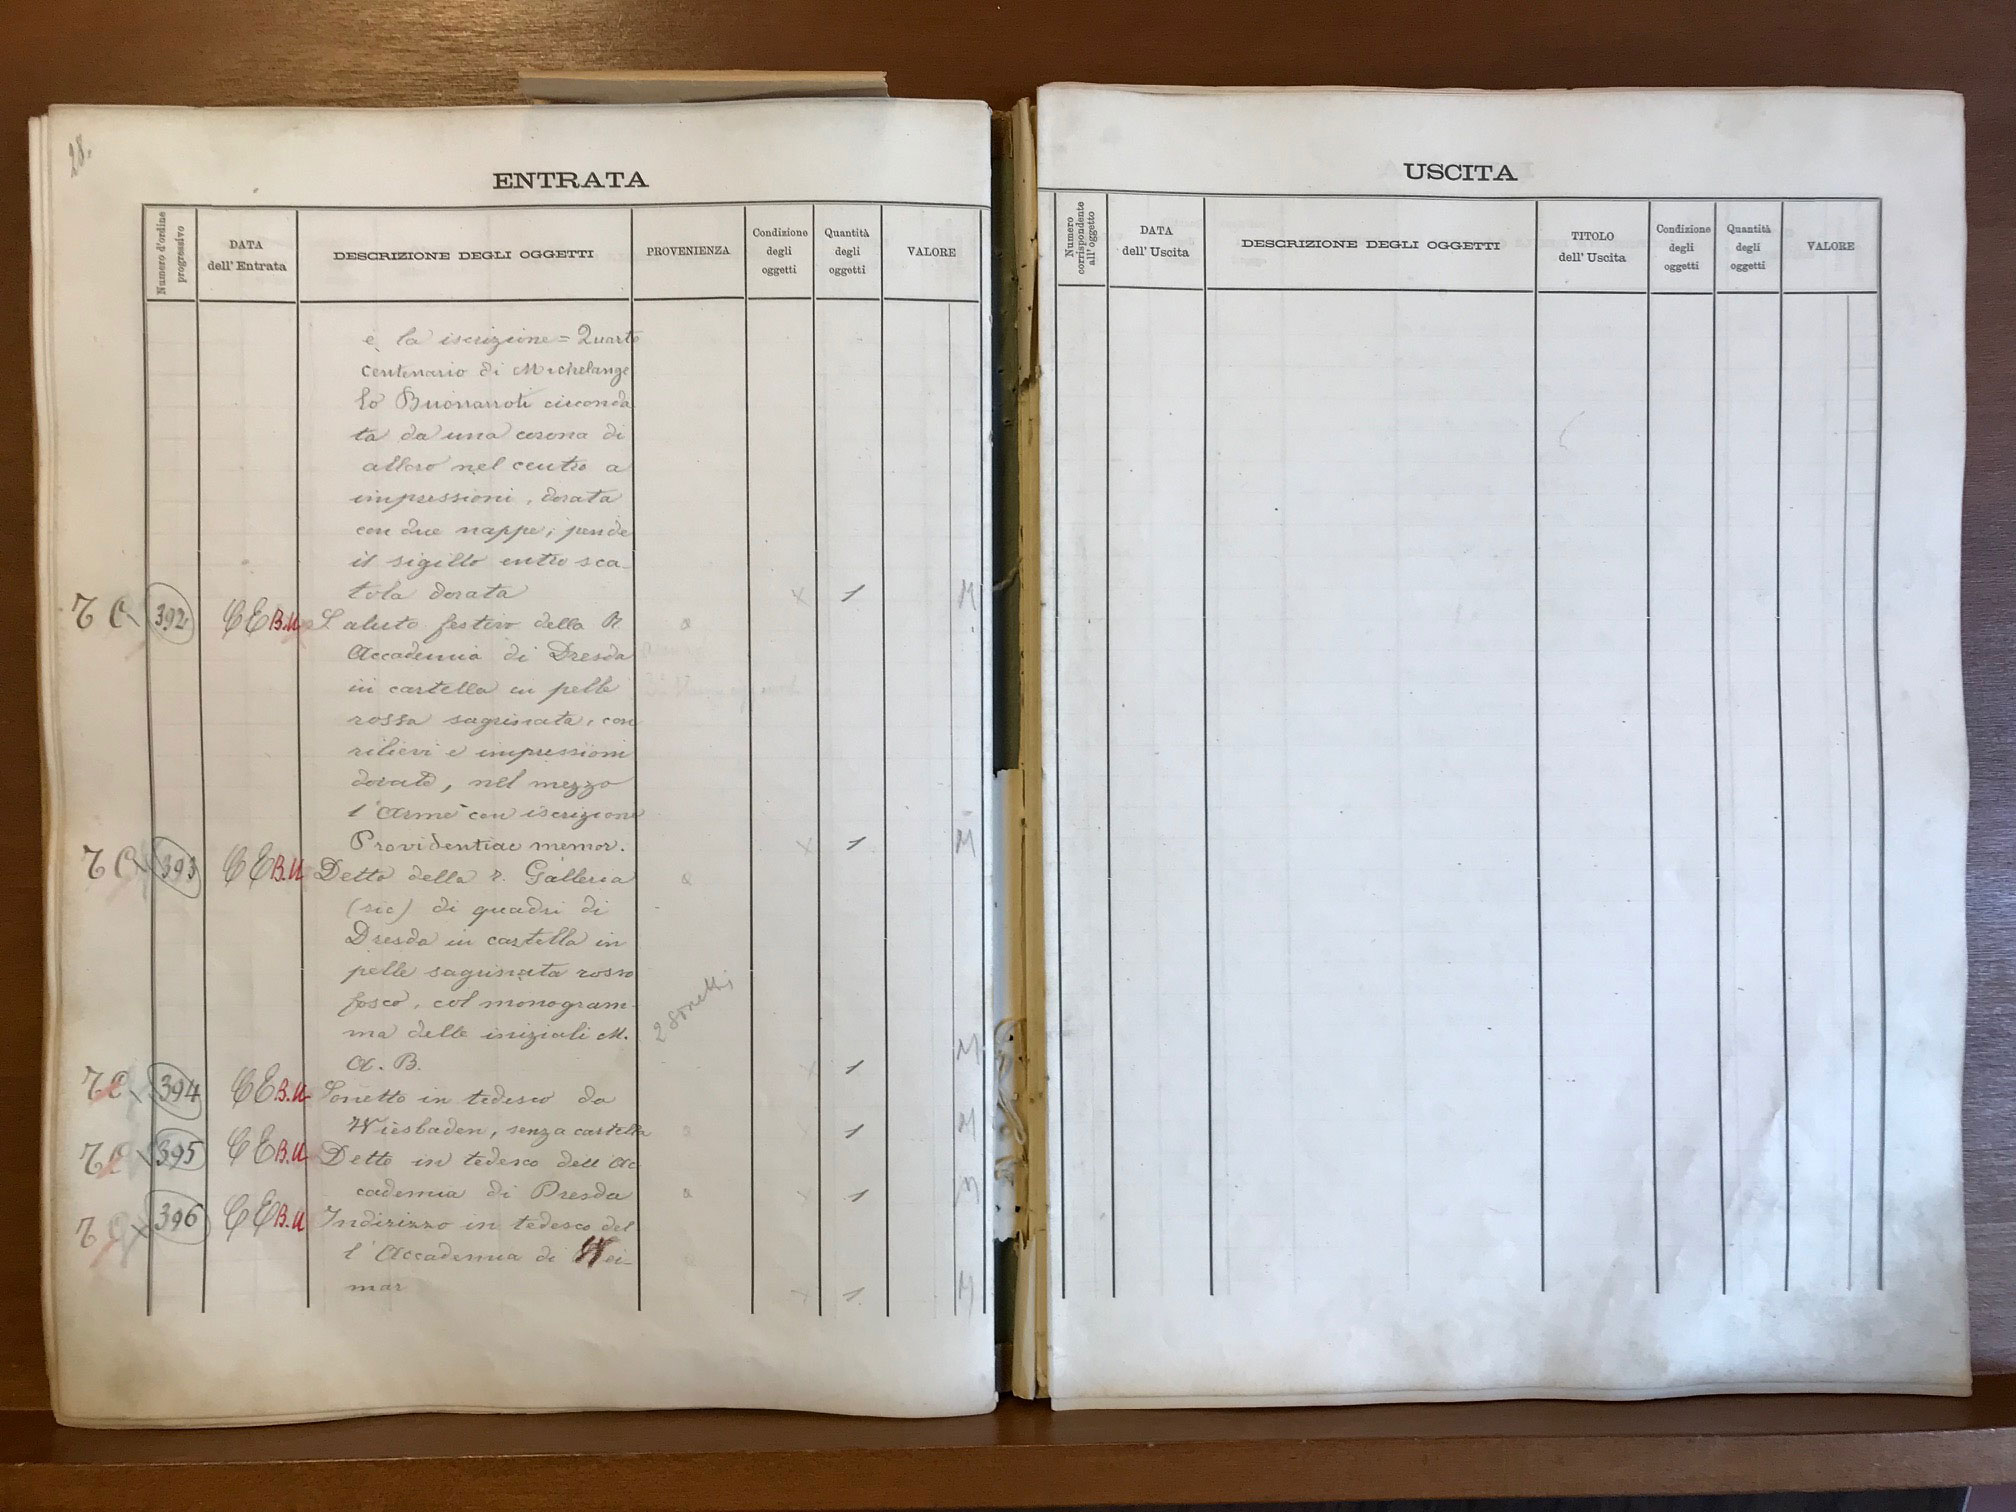 28.
ENTRATA
Numero d'ordine progressivo
DATA dell' Entrata
DESCRIZIONE DEGLI OGGETTI
PROVENIENZA
Condizione degli oggetti
Quantità degli oggetti
VALORE
e la iscrizione = Quarto
centenario di Michelange
lo Buonarroti circonda
ta da una corona di
alloro nel centro a
impressioni, dorata
con due nappe; pende
il sigillo entro sca-
tola dorata x 1 M
T C 392 C E B.U Saluto festivo della R
Accademia di Dresda
in cartella in pelle
rossa sagrinata, con
rilievi e impressioni
dorate, nel mezzo
l'Arme con iscrizione
Providentiae memor. x 1 M
T C 393 C E B.U Detto della r. Galleria
(sic) di quadri di
Dresda in cartella in
pelle sagrinata rosso
fosco, col monogram-
ma delle iniziali M. 2 sonetti
A. B. x 1 M
T C 394 C E B.U Sonetto in tedesco da
Wiesbaden, senza cartella 1 M
T C 395 C E B.U Detto in tedesco dell'Ac
cademia di Dresda x 1 M
T C 396 C E B.U Indirizzo in tedesco del
l'Accademia di Wei-
mar x 1 M
USCITA
Numero corrispondente all'oggetto
DATA dell' Uscita
DESCRIZIONE DEGLI OGGETTI
TITOLO dell' Uscita
Condizione degli oggetti
Quantità degli oggetti
VALORE